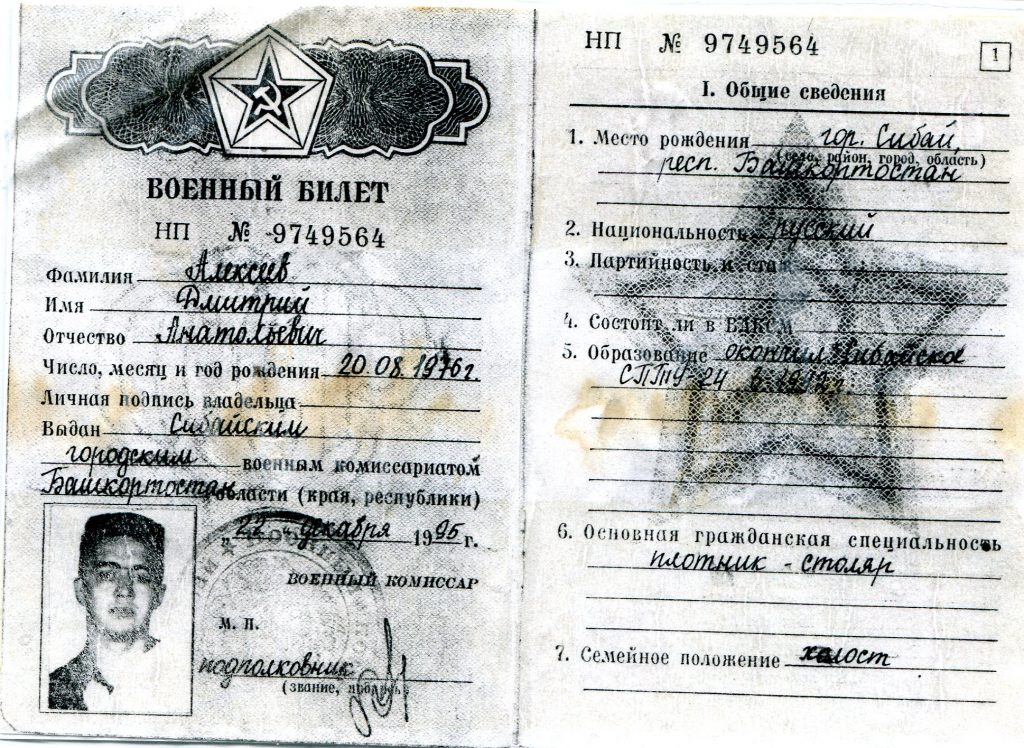 ВОЕННЫЙ БИЛЕТ
НП № 9749564
Фамилия Алексеев
Имя Дмитрий
Отчество Анатольевич
Число, месяц и год рождения 20.08.1976г.
Личная подпись владельца
Выдан Сибайским
городским военным комиссариатом
Башкортостан области (края, республики)
„22„ декабря 1995 г.
ВОЕННЫЙ КОМИССАР
М. П.
подполковник
(звание, подпись)
НП № 9749564
1
I. Общие сведения
1. Место рождения гор. Сибай,
(село, район, город, область)
респ. Башкортостан
2. Национальность русский
3. Партийность и стаж
4. Состоит ли в ВЛКСМ
5. Образование окончил Сибайское
СПТУ-24 в г.
6. Основная гражданская специальность
плотник - столяр
7. Семейное положение холост